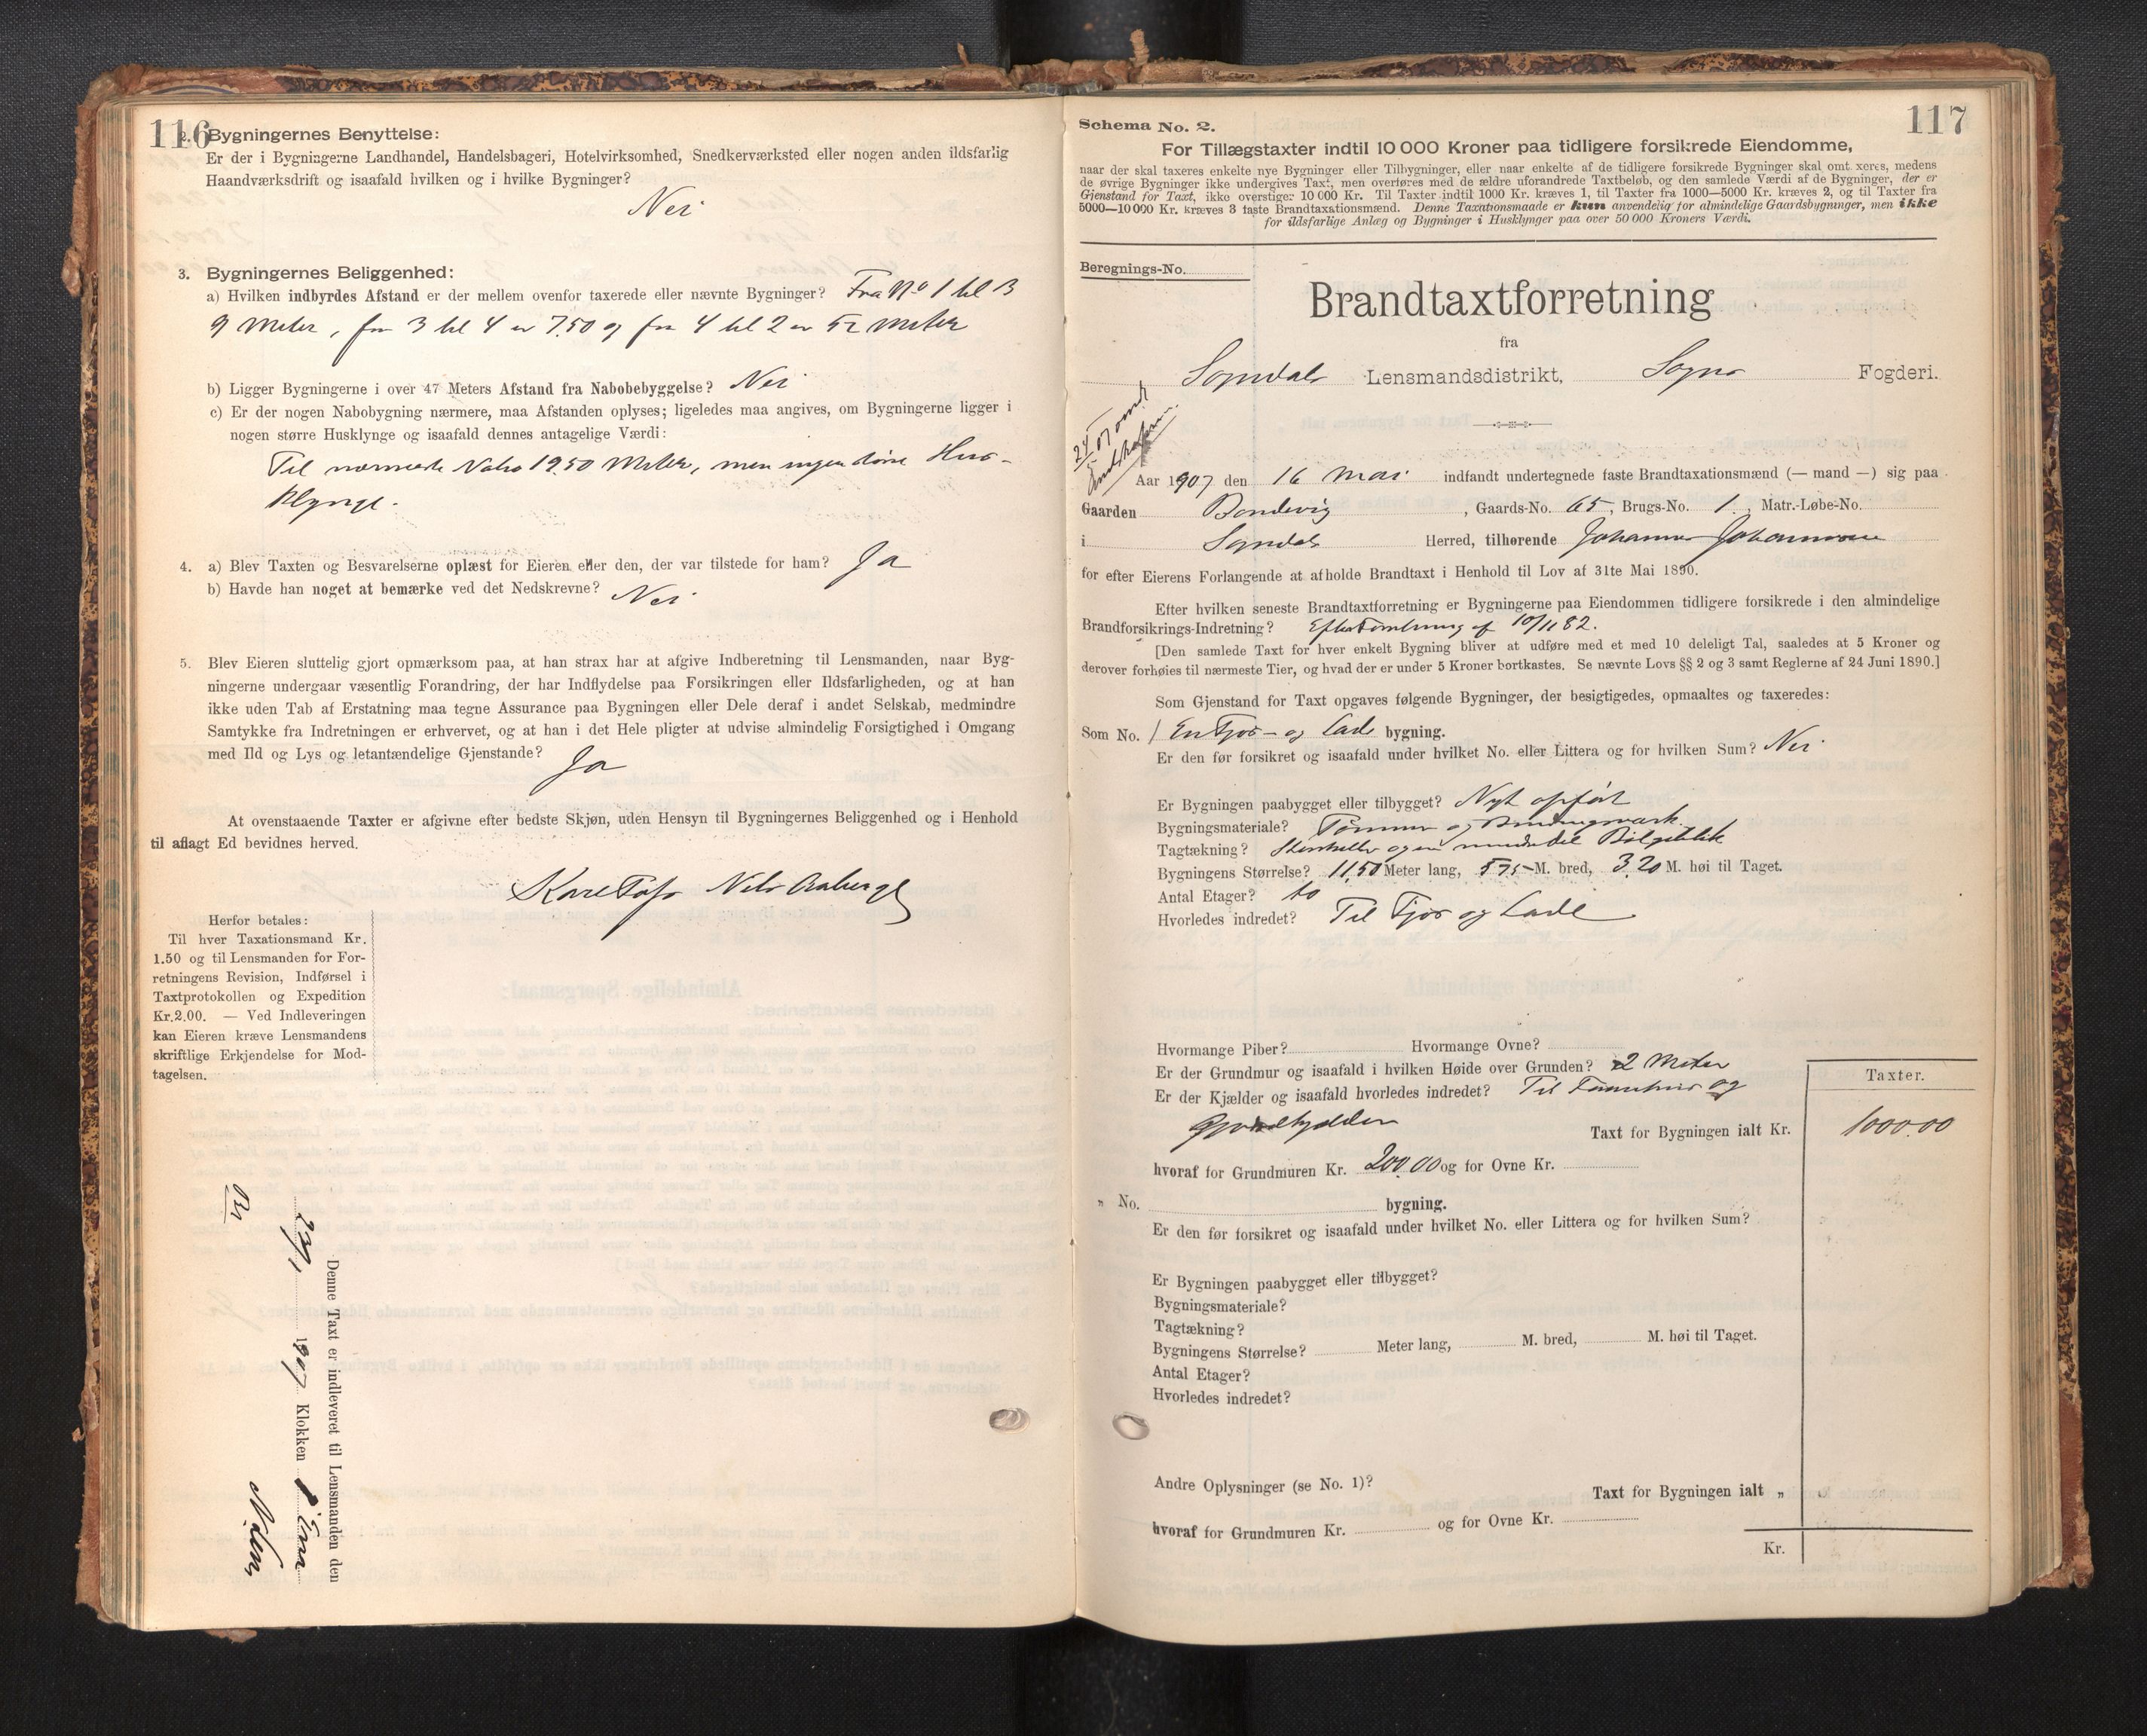 116
2. Bygningernes Benyttelse:
Er der i Bygningerne Landhandel, Handelsbageri, Hotelvirksomhed, Snedkerværksted eller nogen anden ildsfarlig
Haandværksdrift og isaafald hvilken og i hvilke Bygninger?
Nei
3. Bygningernes Beliggenhed:
a) Hvilken indbyrdes Afstand er der mellem ovenfor taxerede eller nævnte Bygninger? Fra No 1 til 3
9 Meter, fra 3 til 4 er 7.50 og fra 4 til 2 er 52 Meter
b) Ligger Bygningerne i over 47 Meters Afstand fra Nabobebyggelse? Nei
c) Er der nogen Nabobygning nærmere, maa Afstanden oplyses; ligeledes maa angives, om Bygningerne ligger i
nogen større Husklynge og isaafald dennes antagelige Værdi:
Til nærmeste Nabo 19.50 Meter, men ingen større Hus-
klynge.
4. a) Blev Taxten og Besvarelserne oplæst for Eieren eller den, der var tilstede for ham? Ja
b) Havde han noget at bemærke ved det Nedskrevne? Nei
5. Blev Eieren sluttelig gjort opmærksom paa, at han strax har at afgive Indberetning til Lensmanden, naar Byg-
ningerne undergaar væsentlig Forandring, der har Indflydelse paa Forsikringen eller Ildsfarligheden, og at han
ikke uden Tab af Erstatning maa tegne Assurance paa Bygningen eller Dele deraf i andet Selskab, medmindre
Samtykke fra Indretningen er erhvervet, og at han i det Hele pligter at udvise almindelig Forsigtighed i Omgang
med Ild og Lys og letantændelige Gjenstande? Ja
At ovenstaaende Taxter er afgivne efter bedste Skjøn, uden Hensyn til Bygningernes Beliggenhed og i Henhold
til aflagt Ed bevidnes herved.
Nils Aaberge
Herfor betales:
Til hver Taxationsmand Kr.
1.50 og til Lensmanden for For-
retningens Revision, Indførsel i
Taxtprotokollen og Expedition
Kr.2.00. — Ved Indleveringen
kan Eieren kræve Lensmandens
skriftlige Erkjendelse for Mod-
tagelsen.
Denne Taxt er indleveret til Lensmanden den
1907 Klokken
117
Schema No. 2.
For Tillægstaxter indtil 10 000 Kroner paa tidligere forsikrede Eiendomme,
naar der skal taxeres enkelte nye Bygninger eller Tilbygninger, eller naar enkelte af de tidligere forsikrede Bygninger skal omt xeres, medens
de øvrige Bygninger ikke undergives Taxt, men overføres med de ældre uforandrede Taxtbeløb, og den samlede Værdi af de Bygninger, der er
Gjenstand for Taxt, ikke overstiger 10 000 Kr. Til Taxter indtil 1000 Kr. kræves 1, til Taxter fra 1000—5000 Kr. kræves 2, og til Taxter fra
5000—10 000 Kr. kræves 3 faste Brandtaxationsmænd. Denne Taxationsmaade er kun anvendelig for almindelige Gaardsbygninger, men ikke
for ildsfarlige Anlæg og Bygninger i Husklynger paa over 50 000 Kroners Værdi.
Beregnings-No.
Brandtaxtforretning
fra
Sogndals Lensmandsdistrikt, Sogns Fogderi.
Aar 1907 den 16 Mai indfandt undertegnede faste Brandtaxationsmænd (— mand —) sig paa
Gaarden Bondevig, Gaards-No. 65, Brugs-No. 1, Matr.-Løbe-No.
i Sogndals Herred, tilhørende Johannes Johannessen
for efter Eierens Forlangende at afholde Brandtaxt i Henhold til Lov af 31te Mai 1890.
Efter hvilken seneste Brandtaxtforretning er Bygningerne paa Eiendommen tidligere forsikrede i den almindelige
Brandforsikrings-Indretning? af 10/11 82.
[Den samlede Taxt for hver enkelt Bygning bliver at udføre med et med 10 deleligt Tal, saaledes at 5 Kroner og
derover forhøies til nærmeste Tier, og hvad der er under 5 Kroner bortkastes. Se nævnte Lovs §§ 2 og 3 samt Reglerne af 24 Juni 1890.]
Som Gjenstand for Taxt opgaves følgende Bygninger, der besigtigedes, opmaaltes og taxeredes:
Som No. 1 En Fjøs- og Lade bygning.
Er den før forsikret og isaafald under hvilket No. eller Littera og for hvilken Sum? Nei
Er Bygningen paabygget eller tilbygget? Nyt opført
Bygningsmateriale? Tømmer og Bindingsværk.
Tagtækning? Stenheller og en mindre Del Bølgeblik
Bygningens Størrelse? 11.50 Meter lang, 5.75 M. bred, 3.20 M. høi til Taget.
Antal Etager? to
Hvorledes indredet? Til Fjøs og Lade
Hvormange Piber? Hvormange Ovne?
Er der Grundmur og isaafald i hvilken Høide over Grunden? 2 Meter
Er der Kjælder og isaafald hvorledes indredet? Til og
Gjødelkjelder
Taxter.
Taxt for Bygningen ialt Kr. 1000.00
hvoraf for Grundmuren Kr. 200.00 og for Ovne Kr.
" No. bygning.
Er den før forsikret og isaafald under hvilket No. eller Littera og for hvilken Sum?
Er Bygningen paabygget eller tilbygget?
Bygningsmateriale?
Tagtækning?
Bygningens Størrelse? Meter lang, M. bred, M. høi til Taget.
Antal Etager?
Hvorledes indredet?
Andre Oplysninger (se No. 1)?
Taxt for Bygningen ialt "
hvoraf for Grundmuren Kr. og for Ovne Kr.
Kr.